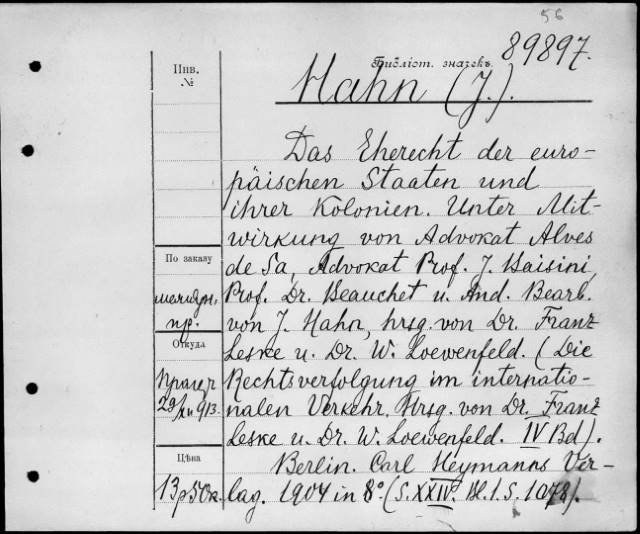 56
89897.
Библіот. значекъ
Hahn (J.).
Инв.
№
Das Eherecht der euro-
päischen Staaten und
ihrer Kolonien. Unter Mit-
wirkung von Advokat Alves
de Sa, Advokat Prof. J. Baisini,
Prof. Dr. Beauchet u. And. Bearb.
von J. Hahn, hrsg. von Dr. Franz
Leske u. Dr. W. Loewenfeld. (Die
Rechtsverfolgung im internatio-
nalen Verkehr. Hrsg. von Dr. Franz
Leske u. Dr. W. Loewenfeld. IV Bd).
Berlin. Carl Heymanns Ver-
lag. 1904 in 8º (S. XXIV. Bl. 1. S. 1078).
По заказу
пр.
Откуда
29/XII 913.
Цѣна
13 р 50 к.